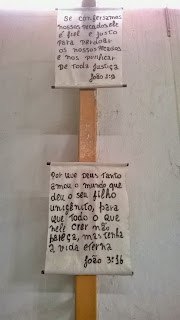 Se confessarmos
nossos pecados ele
é fiel e justo
para perdoar
os nossos pecados
e nos purificar
de toda justiça
João
Porque Deus tanto
amou o mundo que
deu o seu filho
unigênito, para
que todo o que
nele crer não
pereça, mas tenha
a vida eterna
João 3:16